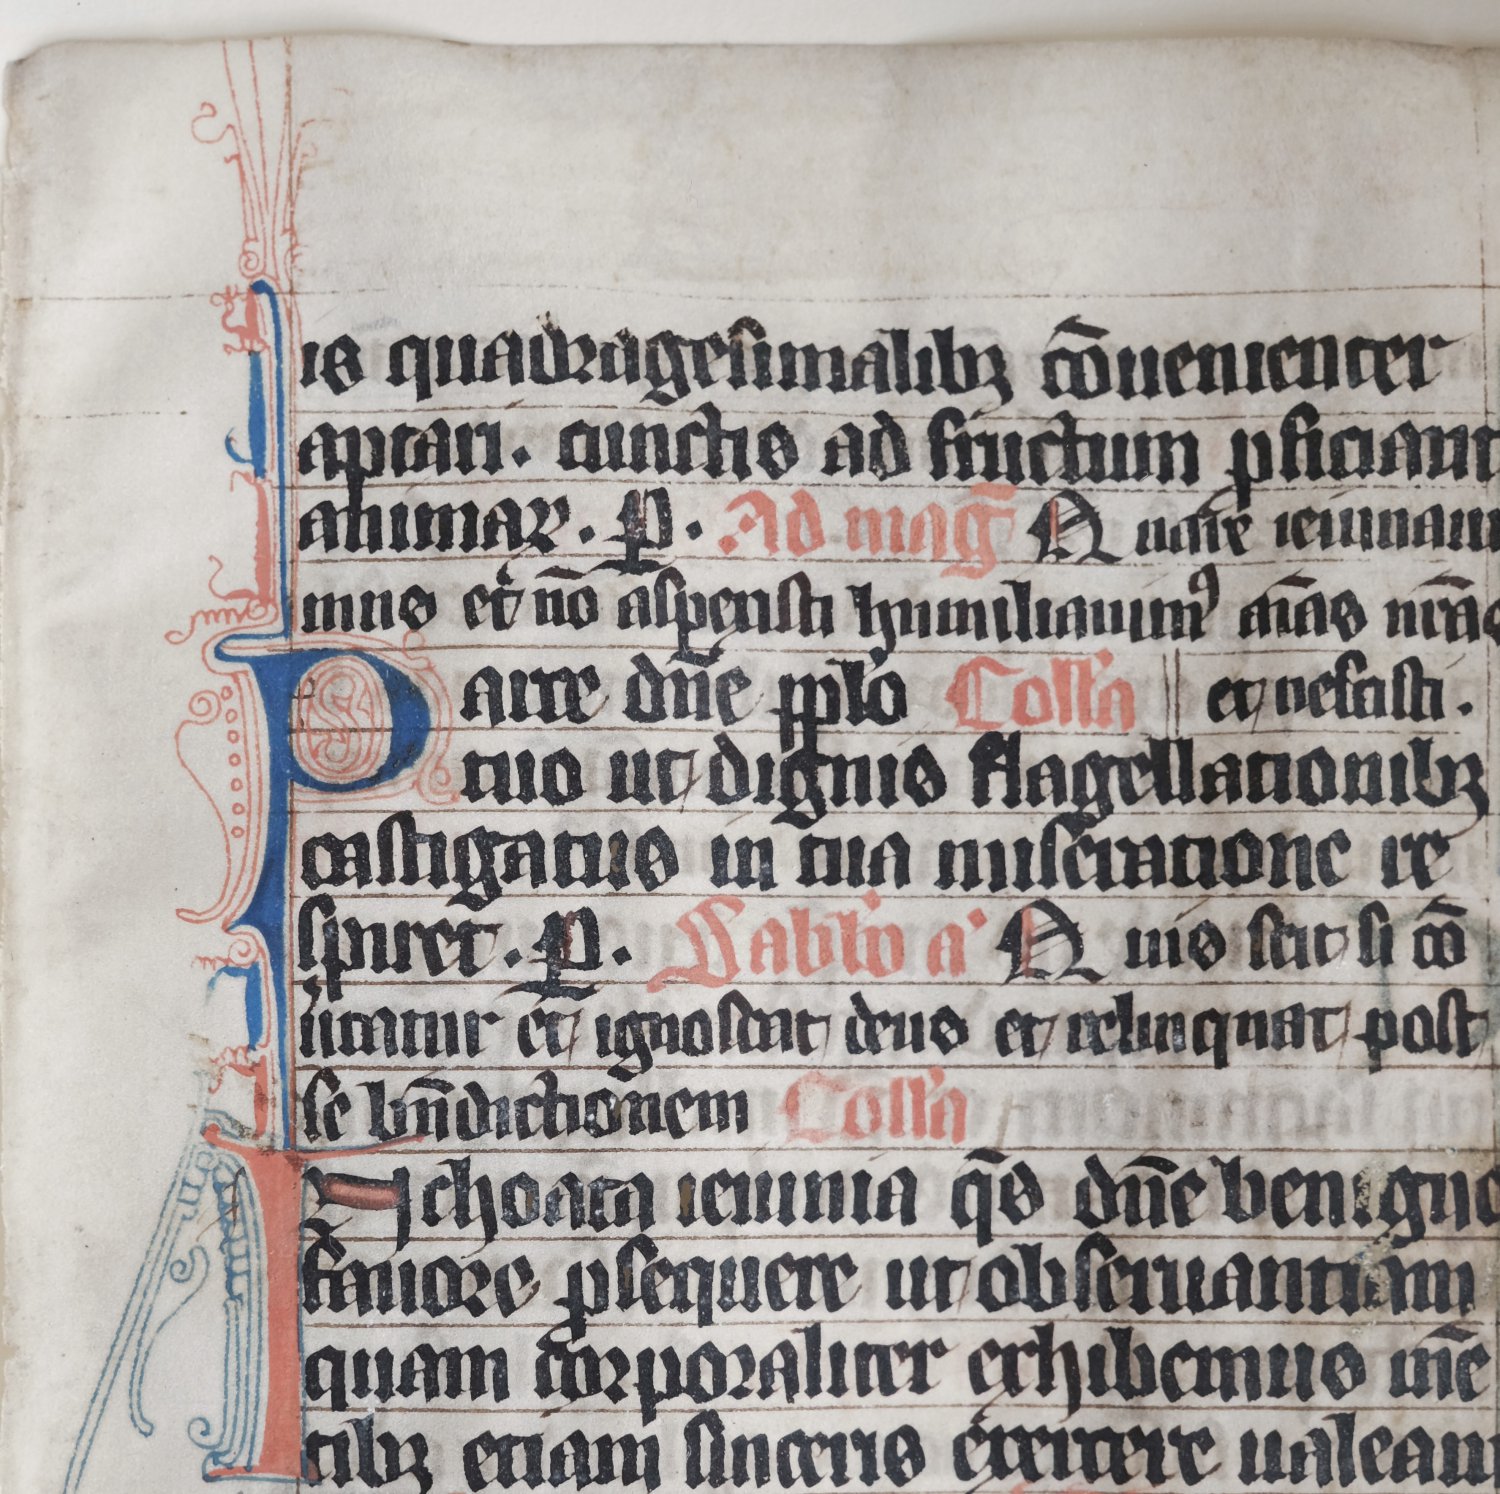 is quadragesimalibꝫ cōuenienter
aptari. cunctis ad fructum ꝑficiant
animaꝝ. P. Ad maḡ Quare ieiunaui
mus et nō aspexisti humiliauimꝰ aīas nr̄as
Parce dn̄e pplo Coll'a || et nescisti.
tuo ut dignis flagellationibꝫ
castigatus in tua miseratione re
spiret. P. Sabb'o a' Quis scit si cō
uertatur et ignoscat deus et relinquat post
se bn̄dictionem Coll'a
Inchoata ieiunia qs̄ dn̄e benigno
fauore ꝓsequere ut obseruantiam
quam corporaliter exhibemus mē
tibꝫ etiam sinceris exercere ualeam